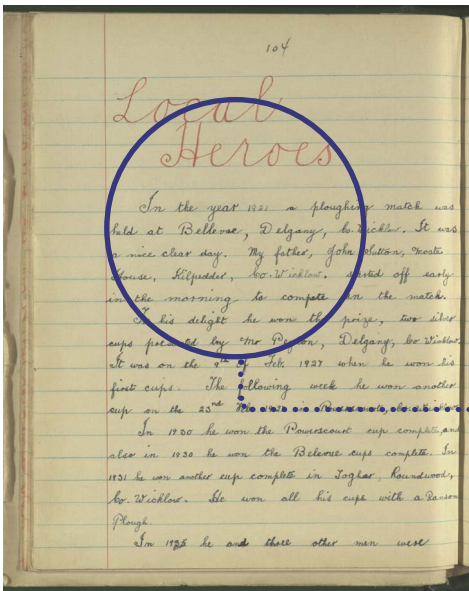 104
Local
Heroes
In the year 1921 a ploughing match was
held at Bellevue, Delgany, Co. Wicklow. It was
a nice clear day. My father, John Sutton,
House, Kilpedder, Co. Wicklow. started off early
in the morning to compete in the match.
To his delight he won the prize, two silver
cups presented by Mr Delgany, Co Wicklow.
It was on the 9th of Feb. 1927 when he won his
first cups. The following week he won another
cup on the 23rd
In 1930 he won the Powerscourt cup complete, and
also in 1930 he won the Bellevue cups complete. In
1931 he won another cup complete in Togher, Roundwood,
Co. Wicklow. He won all his cups with a Ransom
Plough.
In 1935 he and three other men were